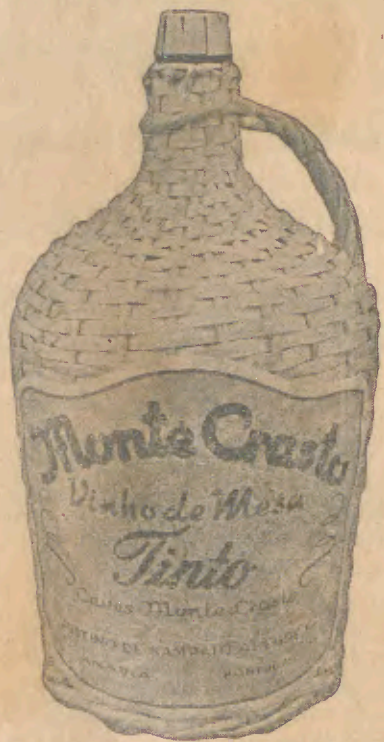 Monte Crasto
Vinho de Mesa
Tinto
Caves Monte Crasto